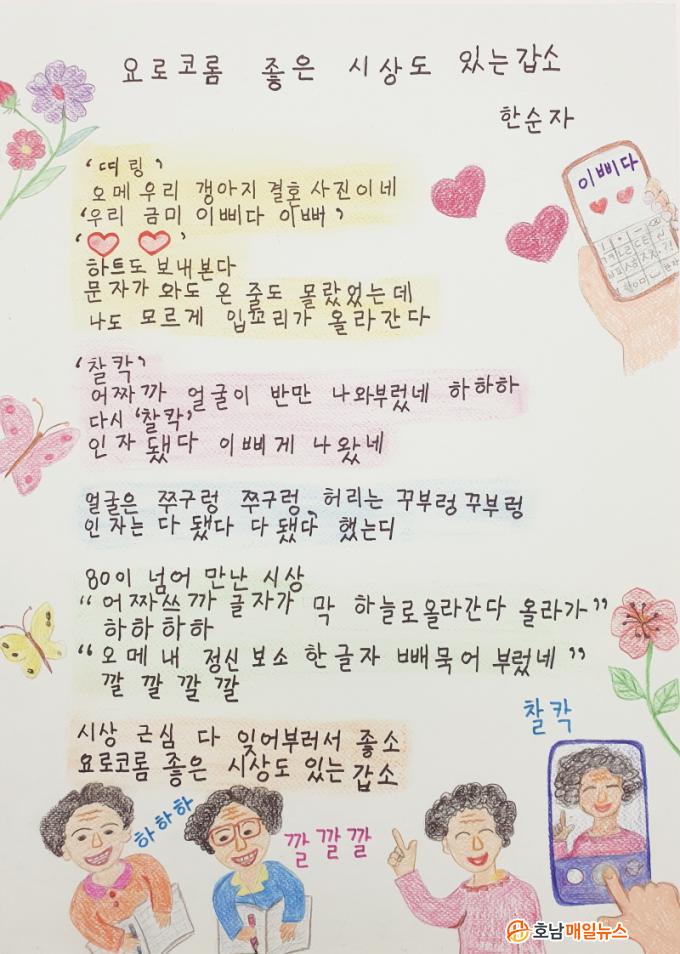 요로코롬 좋은 시상도 있는갑소
한순자
'띠링'
오메 우리 갱아지 결혼사진이네
'우리 금미 이삐다 이뻐'
하트도 보내본다
문자가 와도 온 줄도 몰랐었는데
나도 모르게 입꼬리가 올라간다
'찰칵'
어찌까 얼굴이 반만 나와부렀네 하하하
다시 '찰칵'
인자 됐다 이삐게 나왔네
얼굴은 쭈구렁 쭈구렁, 허리는 꾸부렁꾸부렁
인자는 다 됐다 다 됐다 했는디
80이 넘어 만난 시상
"어찌쓰까 글자가 막 하늘로올라간다 올라가"
하하하하
"오메 내 정신보소 한글자 빼묵어 부렀네"
깔 깔 깔 깔
시상 근심 다 잊어부러서 좋소
요로코롬 좋은 시상도 있는갑소
이삐다
찰칵
하하하
깔깔깔
호남매일뉴스